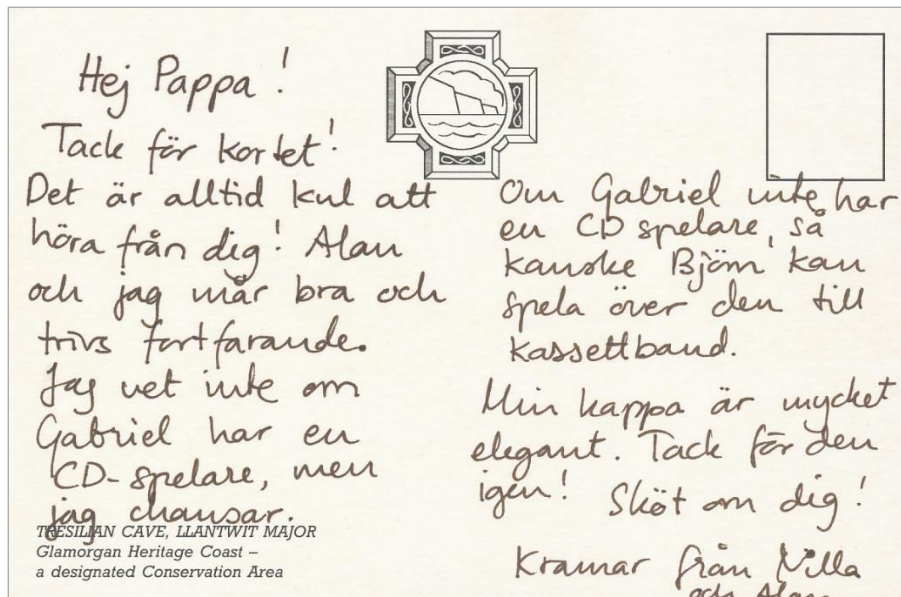 Hej Pappa!
Tack för kortet!
Det är alltid kul att
höra från dig! Alan
och jag mår bra och
trivs fortfarande.
Jag vet inte om
Gabriel har en
CD-spelare, men
jag chansar.
TRESILIAN CAVE, LLANTWIT MAJOR
Glamorgan Heritage Coast –
a designated Conservation Area
Om Gabriel inte har
en CD spelare, så
kanske Björn kan
spela över den till
kassettband.
Min kappa är mycket
elegant. Tack för den
igen! Sköt om dig!
Kramar från Nilla
och Alan